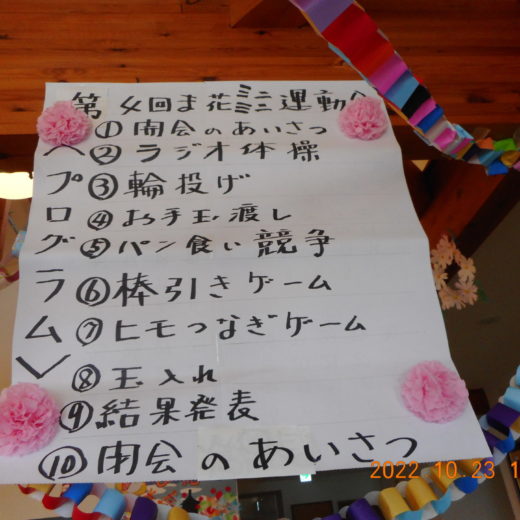 第4回ま花ミニミニ運動会
<プログラム>
①開会のあいさつ
②ラジオ体操
③輪投げ
④お手玉渡し
⑤パン食い競争
⑥棒引きゲーム
⑦ヒモつなぎゲーム
⑧玉入れ
⑨結果発表
⑩閉会のあいさつ
2022 10 23 1